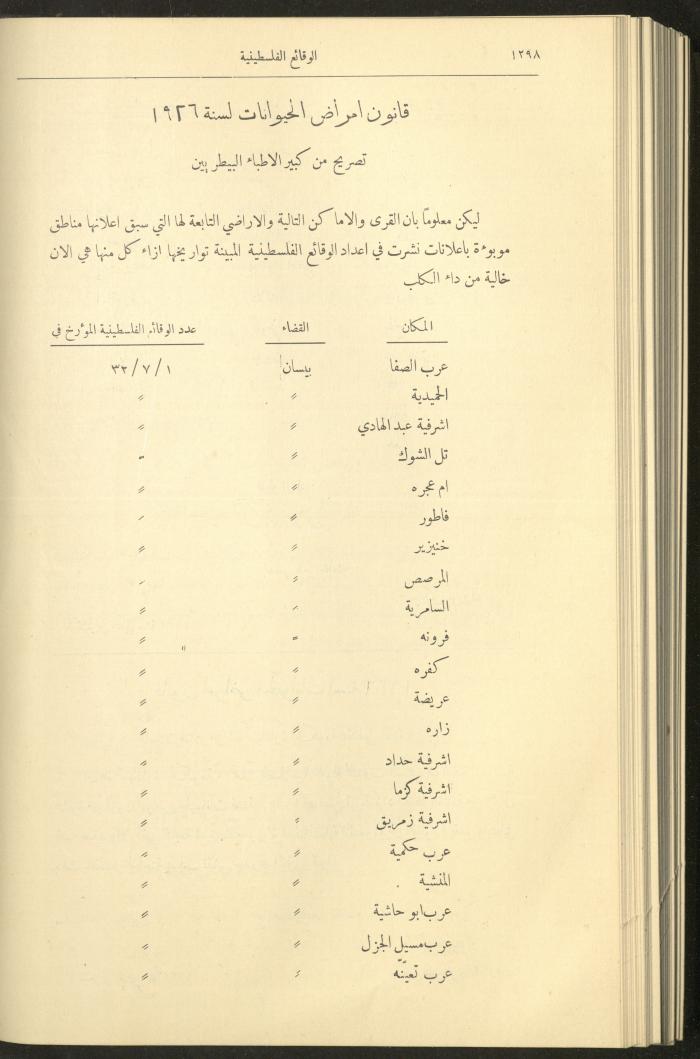 ١٢٩٨ الوقائع الفلسطينية
قانون امراض الحيوانات لسنة ١٩٢٦
تصريح من كبير الاطباء البيطريين
ليكن معلوماً بان القرى والاماكن التالية والاراضي التابعة لها التي سبق اعلانها مناطق
موبوءة باعلانات نشرت في اعداد الوقائع الفلسطينية المبينة تواريخها ازاء كل منها هي الان
خالية من داء الكلب
المكان القضاء عدد الوقائع الفلسطينية المؤرخ في
عرب الصفا بيسان ٣٢/٧/١
الحميدية 〃 〃
اشرفية عبد الهادي 〃 〃
تل الشوك 〃 〃
ام عجره 〃 〃
فاطور 〃 〃
خنيزير 〃 〃
المرصص 〃 〃
السامرية 〃 〃
فرونه 〃 〃
كفره 〃 〃
عريضة 〃 〃
زاره 〃 〃
اشرفية حداد 〃 〃
اشرفية كزما 〃 〃
اشرفية زمريق 〃 〃
عرب حكمية 〃 〃
المنشية 〃 〃
عرب ابو حاشية 〃 〃
عرب مسيل الجزل 〃 〃
عرب تعينّه 〃 〃